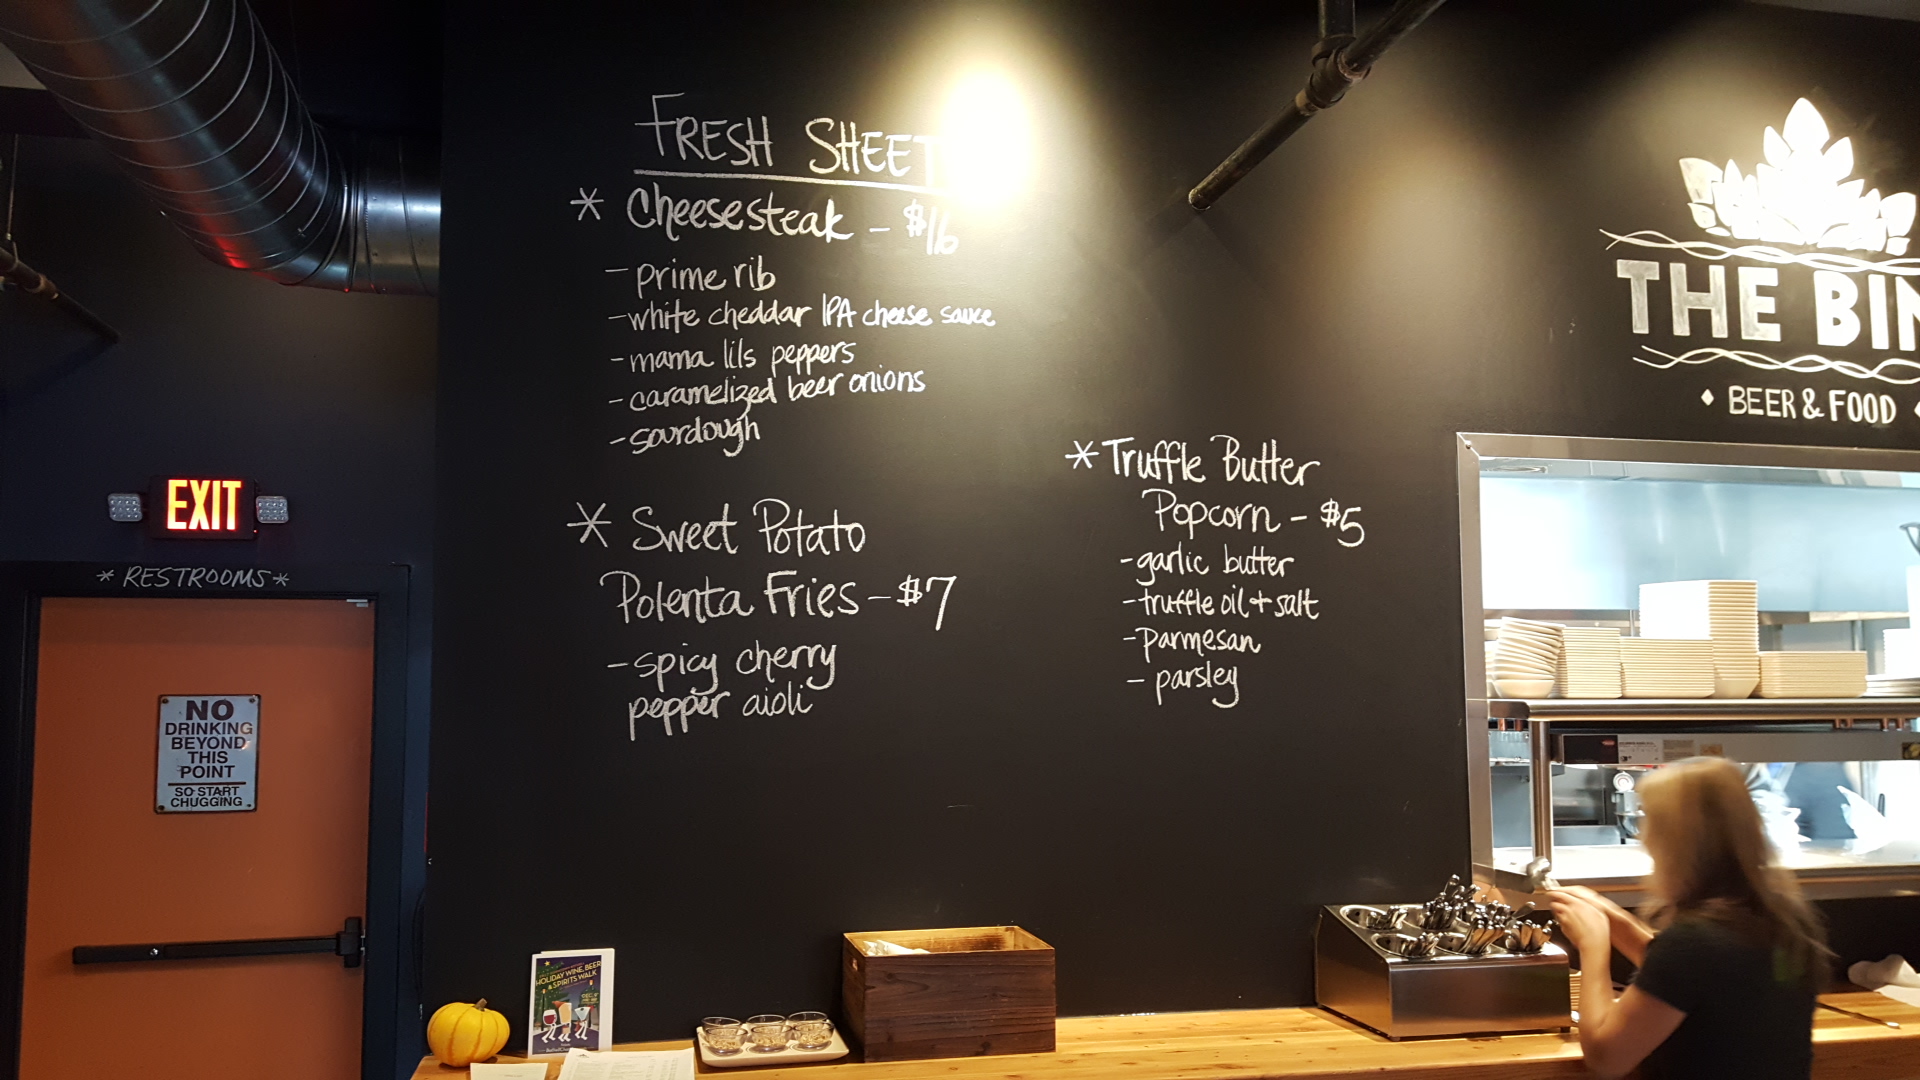 FRESH SHEET
* Cheesesteak - $16
- prime rib
- white cheddar IPA cheese sauce
- mama lils peppers
- caramelized beer onions
- sourdough
* Sweet Potato
Polenta Fries - $7
- spicy cherry
pepper aioli
* Truffle Butter
Popcorn - $5
- garlic butter
- truffle oil + salt
- parmesan
- parsley
THE BIN
BEER & FOOD
EXIT
* RESTROOMS *
NO
DRINKING
BEYOND
THIS
POINT
SO START
CHUGGING
HOLIDAY WINE, BEER
& SPIRITS WALK